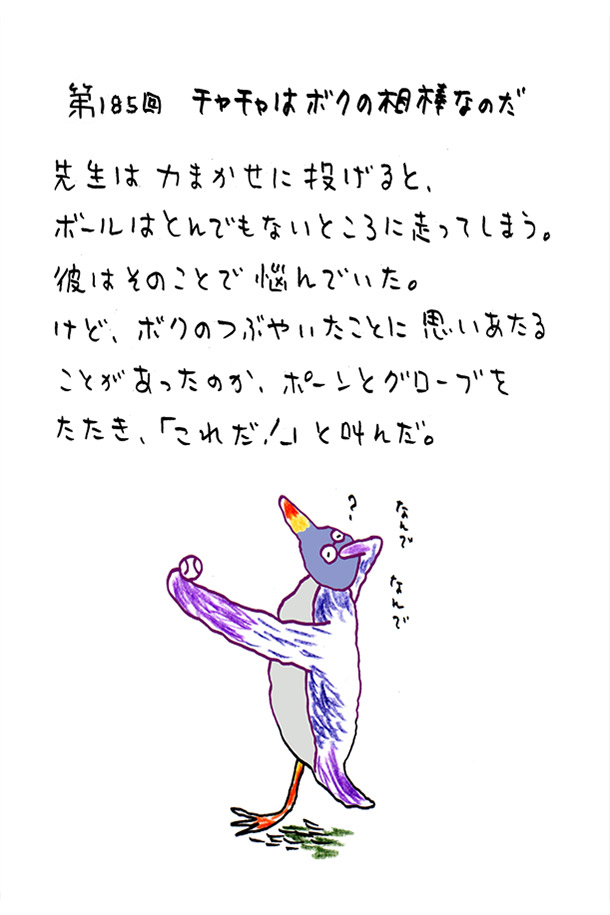 第185回 チャチャはボクの相棒なのだ
先生は力まかせに投げると、
ボールはとんでもないところに走ってしまう。
彼はそのことで悩んでいた。
けど、ボクのつぶやいたことに思いあたる
ことがあったのか、ポーンとグローブを
たたき、「これだ!」と叫んだ。
?
なんで
なんで